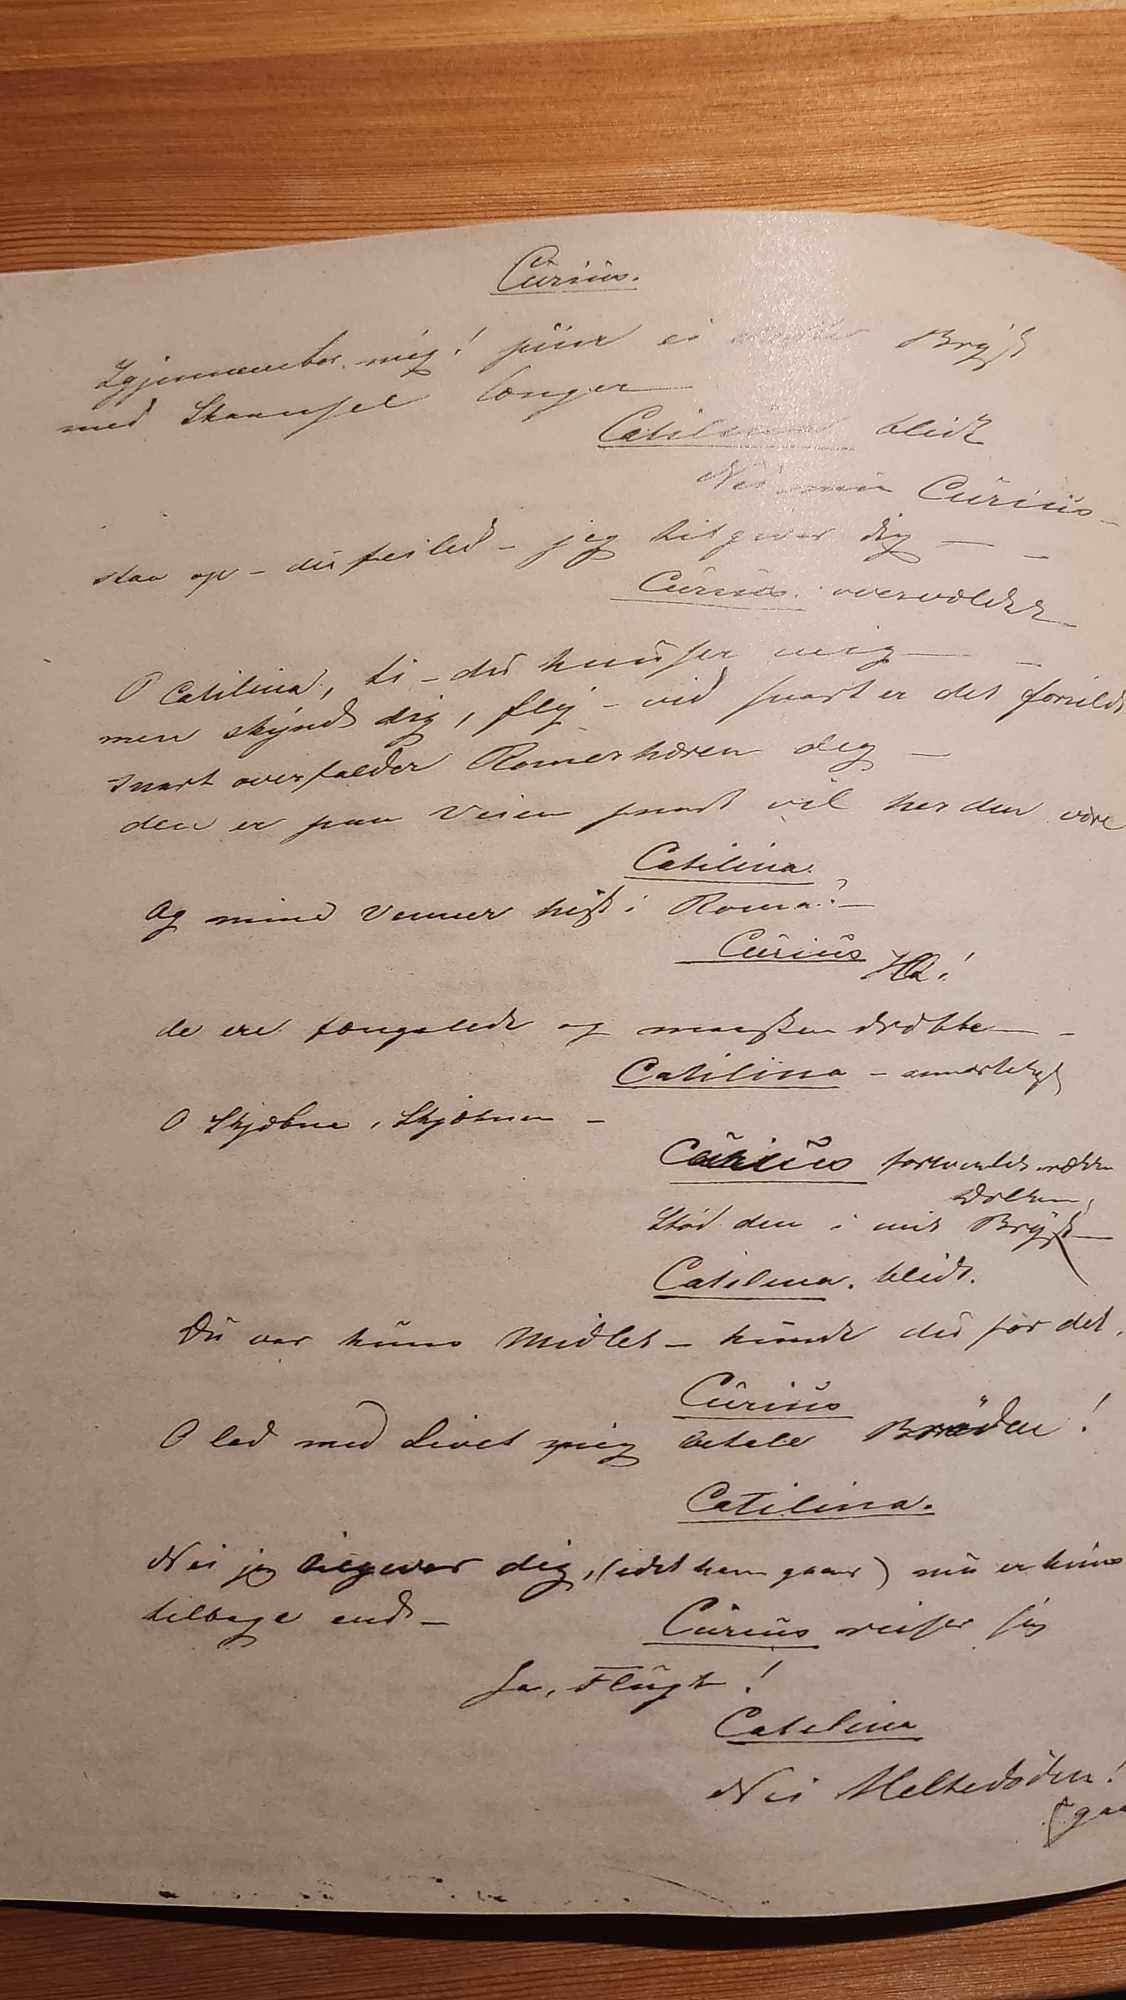 Curius.
Igjennembor mig! piin ei Bryst
med Skaansel længer
Catilina blidt
Nei min Curius –
staa op – du feiled – jeg tilgiver dig – –
Curius. overvældet
O Catilina, ti – du knuser mig – –
men skynd dig, fly – vid snart er det forsildt
snart overfalder Romerhæren dig –
den er paa Veien snart vil her den være
Catilina.
Og mine Venner hist i Roma? –
Curius
Ha!
de ere fængslede og maaskee dræbte – –
Catilina – smerteligt
O Skjæbne, Skjæbne –
Curius fortvivlet rækker
Dolken,
Stød den i mit Bryst –
Catilina. blidt.
Du var kuns Midlet – kunde du for det.
Curius
O lad med Livet mig betale Brøden!
Catilina.
Nei jeg tilgiver dig, (idet han gaaer) nu er kuns
tilbage end –
Curius reiser sig
Ja, Flugt!
Catilina
Nei Heltedøden!
(gaa